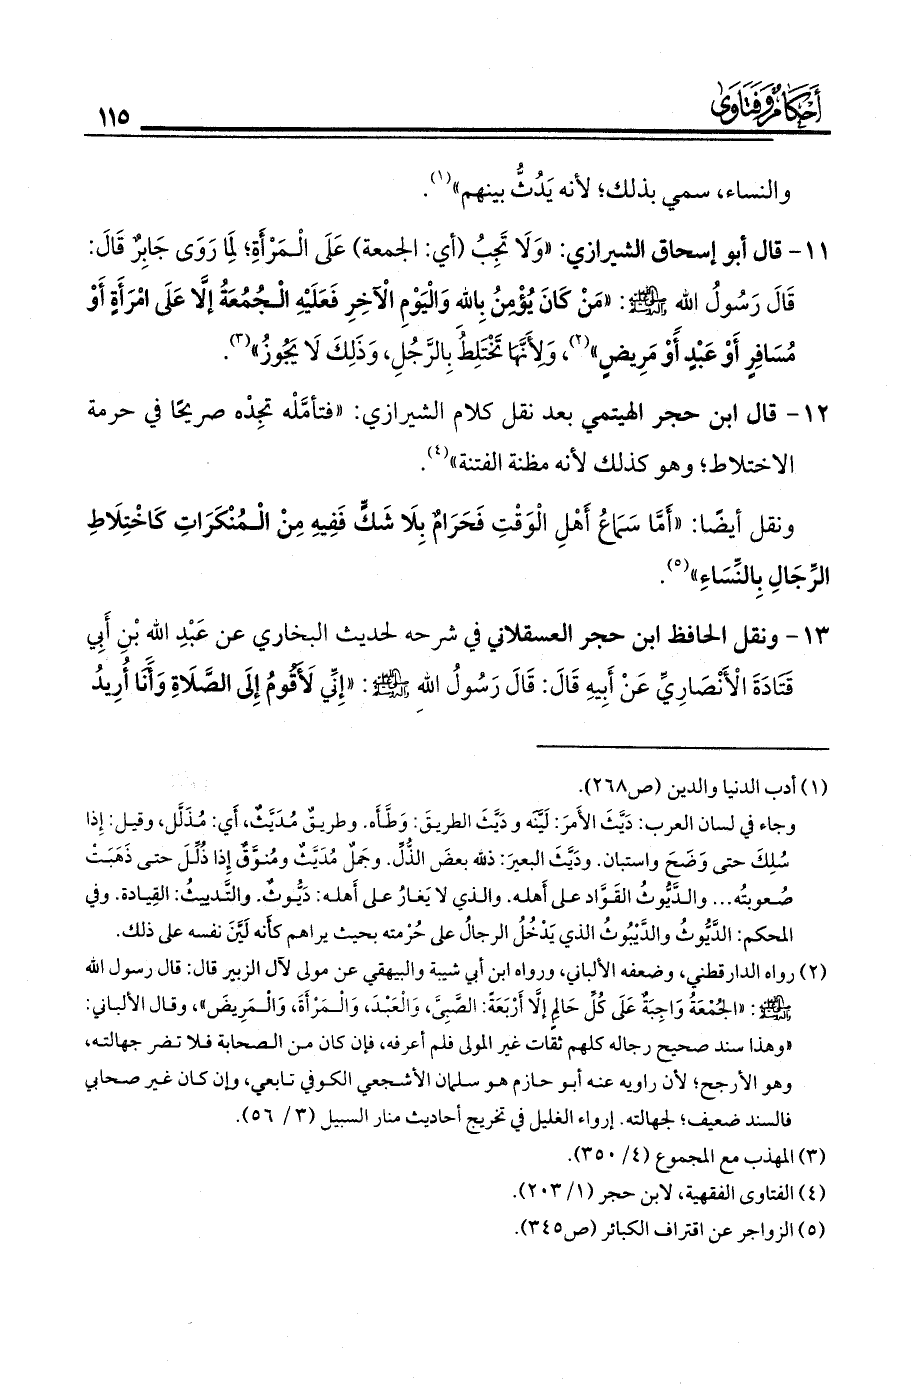 أَحْكَامٌ وَفَتَاوَى
١١٥
والنساء، سمي بذلك؛ لأنه يَدُثُّ بينهم»(١).
١١- قال أبو إسحاق الشيرازي: «وَلَا تَجِبُ (أي: الجمعة) عَلَى الْمَرْأَةِ؛ لِمَا رَوَى جَابِرٌ قَالَ:
قَالَ رَسُولُ اللهِ ﷺ: «مَنْ كَانَ يُؤْمِنُ بِاللهِ وَالْيَوْمِ الْآخِرِ فَعَلَيْهِ الْجُمُعَةُ إلَّا عَلَى امْرَأَةٍ أَوْ
مُسَافِرٍ أَوْ عَبْدٍ أَوْ مَرِيضٍ»(٢)، وَلِأَنَّهَا تَخْتَلِطُ بِالرَّجُلِ، وَذَلِكَ لَا يَجُوزُ»(٣).
١٢- قال ابن حجر الهيتمي بعد نقل كلام الشيرازي: «فتأمَّلْه تجِدْه صريحًا في حرمة
الاختلاط؛ وهو كذلك لأنه مظنة الفتنة»(٤).
ونقل أيضًا: «أَمَّا سَمَاعُ أَهْلِ الْوَقْتِ فَحَرَامٌ بِلَا شَكٍّ فَفِيهِ مِنْ الْمُنْكَرَاتِ كَاخْتِلَاطِ
الرِّجَالِ بِالنِّسَاءِ»(٥).
١٣- ونقل الحافظ ابن حجر العسقلاني في شرحه لحديث البخاري عن عَبْدِ اللهِ بْنِ أَبِي
قَتَادَةَ الْأَنْصَارِيِّ عَنْ أَبِيهِ قَالَ: قَالَ رَسُولُ اللهِ ﷺ: «إِنِّي لَأَقُومُ إِلَى الصَّلَاةِ وَأَنَا أُرِيدُ
(١) أدب الدنيا والدين (ص٢٦٨).
وجاء في لسان العرب: دَيَّثَ الأمرَ: لَيَّنَه و دَيَّثَ الطريقَ: وَطَّأَه. وطريقٌ مُدَيَّثٌ، أي: مُذَلَّل، وقيل: إذا
سُلِكَ حتى وَضَحَ واستبان. ودَيَّثَ البعيرَ: ذلله بعضَ الذُّلِّ. وجَمَلٌ مُدَيَّثٌ ومُنوَّقٌ إذا ذُلِّلَ حتى ذَهَبَتْ
صُعوبتُه... والدَّيُّوثُ القَوَّاد على أهله. والذي لا يَغارُ على أهله: دَيُّوثٌ. والتَّدييثُ: القِيادة. وفي
المحكم: الدَّيُّوثُ والدَّيْبُوثُ الذي يَدْخُلُ الرجالُ على حُرْمته بحيث يراهم كأنه لَيَّنَ نفسه على ذلك.
(٢) رواه الدارقطني، وضعفه الألباني، ورواه ابن أبي شيبة والبيهقي عن مولى لآل الزبير قال: قال رسول الله
ﷺ: «الجُمُعَةُ وَاجِبَةٌ عَلَى كُلِّ حَالِمٍ إلَّا أَرْبَعَةً: الصَّبِيَّ، وَالْعَبْدَ، وَالْمَرْأَةَ، وَالْمَرِيضَ»، وقال الألباني:
«وهذا سند صحيح رجاله كلهم ثقات غير المولى فلم أعرفه، فإن كان من الصحابة فلا تضر جهالته،
وهو الأرجح؛ لأن راويه عنه أبو حازم هو سلمان الأشجعي الكوفي تابعي، وإن كان غير صحابي
فالسند ضعيف؛ لجهالته. إرواء الغليل في تخريج أحاديث منار السبيل (٣/ ٥٦).
(٣) المهذب مع المجموع (٤/ ٣٥٠).
(٤) الفتاوى الفقهية، لابن حجر (١/ ٢٠٣).
(٥) الزواجر عن اقتراف الكبائر (ص٣٤٥).